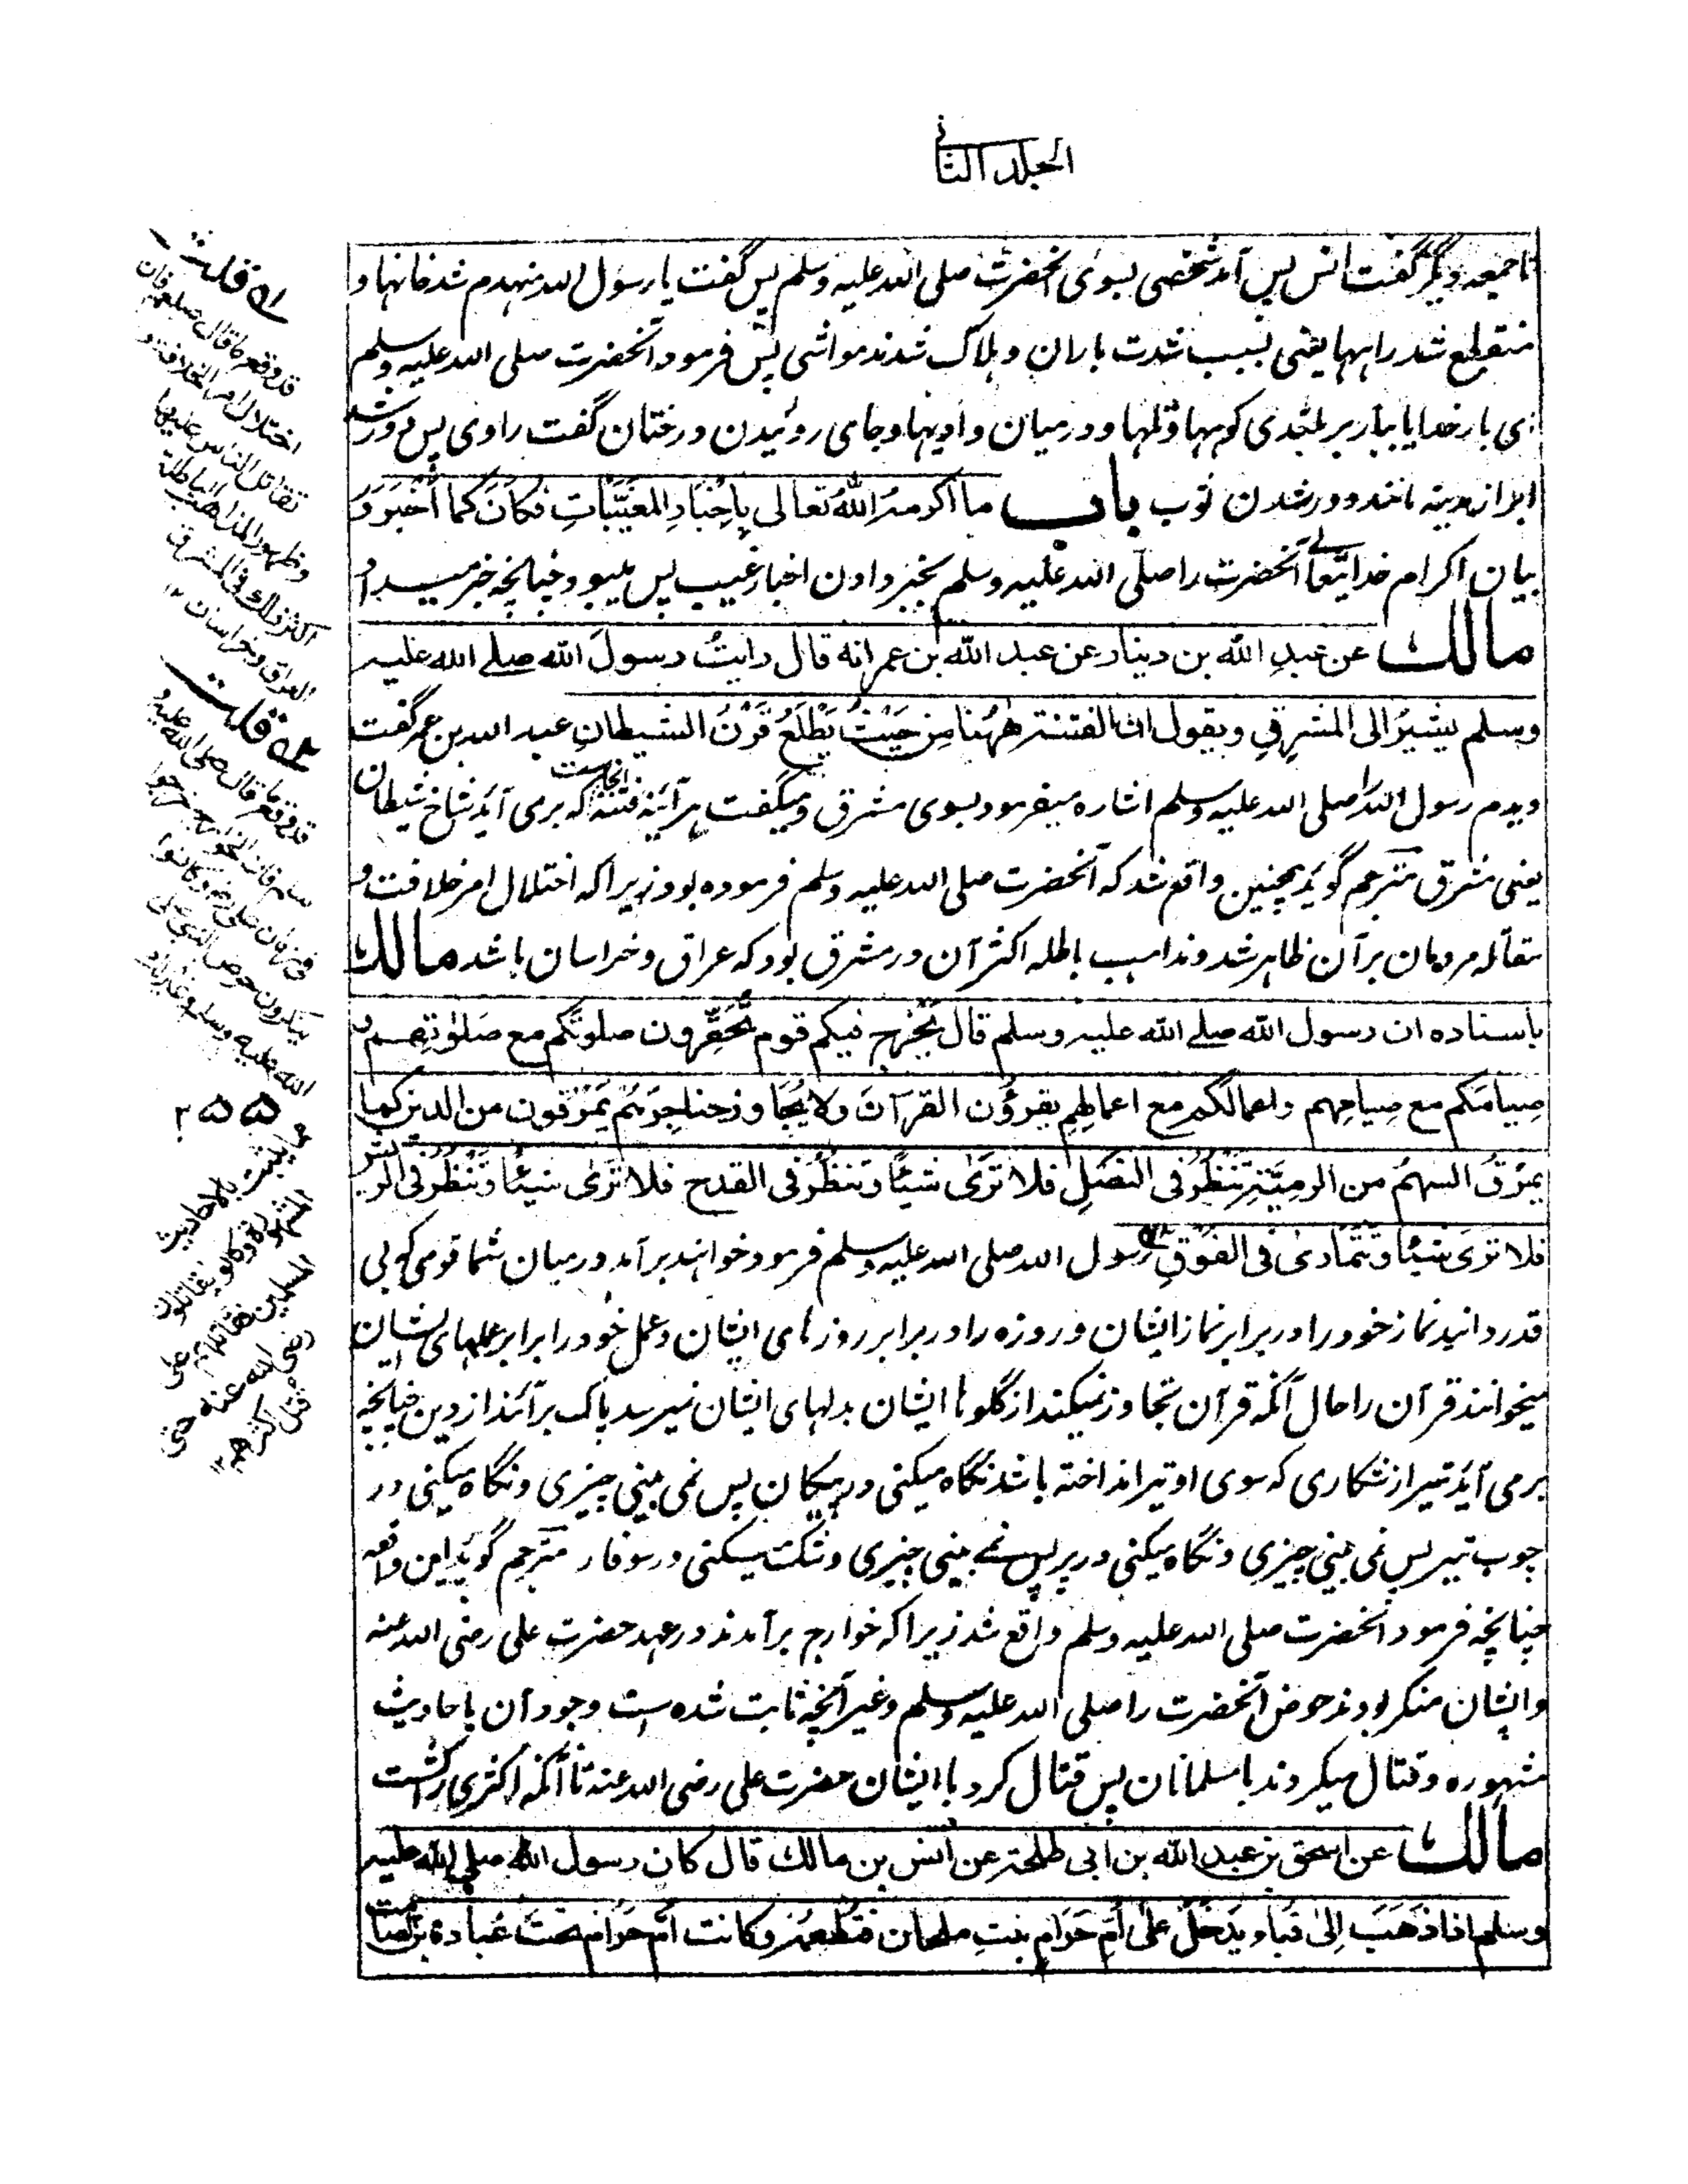 الجلد الثانی
تا جمعه دیگر گفت انس پس آمد شخصی بسوی آنحضرت صلی الله علیه وسلم پس گفت یا رسول الله منهدم شد خانها و
منقطع شد راهها یعنی بسبب شدت باران و هلاک شدند مواشی پس فرمود آنحضرت صلی الله علیه وسلم
ای بار خدایا ببار بر بلندی کوهها و تلها و درمیان وادیها و جای روئیدن درختان گفت راوی پس دور شد
ابر از مدینه مانند دور شدن ثوب باب ما اکرمه الله تعالی بِاِخْبَارِ المغیَّبَاتِ فکَانَ کما أَخْبَرَ وَ
بیان اکرام خدایتعالے آنحضرت را صلی الله علیه وسلم بخبر دادن اخبار غیب پس میبود چنانچه خبر میداد
مالك عن عبدِ الله بن دینار عن عبد الله بن عمر انه قال رایتُ رسولَ الله صلے الله علیه
وسلم یشیرُ الی المشرِقِ ویقول ان الفتنة هٰهُنا مِن حَیْثُ یَطْلَعُ قَرْنُ الشیطانِ عبد الله بن عمر گفت
دیدم رسول الله را صلی الله علیه وسلم اشاره میفرمود بسوی مشرق و میگفت هر آئینه فتنه اینجاست که برمی آید شاخ شیطان
یعنی مشرق مترجم گوید همچنین واقع شد که آنحضرت صلی الله علیه وسلم فرموده بود زیراکه اختلال امر خلافت و
مقاتله مردمان بر آن ظاهر شد و مذاهب باطله اکثر آن در مشرق بود که عراق و خراسان باشد مالك
باسناده ان رسول الله صلے الله علیه وسلم قال یَخْرُج فیکم قوم تُحَقِّرُون صلوتَکُم مع صَلوٰتِهِم و
صِیامَکم مع صِیامِهم واعمالَکُم مع اعمالِهِم یقرؤُن القرآنَ ولا یُجَاوِزحناجِرَهُم یَمْرُقون من الدین کما
یمرُقُ السهمُ من الرمِیَّةِ تَنْظُرُ فی النصلِ فلا تَرَیٰ شیئًا وتنظُرُ فی القدح فلا تَرَیٰ شیئًا وَتَنْظُرُ فی الریش
فلا تَریٰ شیئًا وتَتَمَادیٰ فی الفُوْقِ رسول الله صلی الله علیه وسلم فرمود خواهند برآمد درمیان شما قومی که بی
قدر دانید نماز خود را در برابر نماز ایشان و روزه را در برابر روزهای ایشان و عمل خود را برابر عملهای ایشان
میخوانند قرآن را حال آنکه قرآن تجاوز نمیکند از گلوها ایشان بدلهای ایشان نمیرسد پاک برآئند از دین چنانچه
برمی آید تیر از شکاری که سوی او تیر انداخته باشد نگاه میکنی در پیکان پس نمی بینی چیزی و نگاه میکنی در
چوب تیر پس نمی بینی چیزی و نگاه میکنی در پر پس نمے بینی چیزی و شکت میکنی در سوفار مترجم گوید این واقعه
چنانچه فرمود آنحضرت صلی الله علیه وسلم واقع شد زیراکه خوارج برآمدند در عهد حضرت علی رضی الله عنه
و ایشان منکر بودند حوض آنحضرت را صلی الله علیه وسلم و غیر آنچه ثابت شده است وجود آن باحادیث
مشهوره و قتال میکردند با مسلمانان پس قتال کرد با ایشان حضرت علی رضی الله عنه تا آنکه اکثری را کشت
مالك عن اسحق بن عبد الله بن ابی طلحة عن انس بن مالك قال کان رسول الله صلی الله علیه
وسلم اذا ذَهَبَ اِلیٰ قُبا ویَدْخُلُ علیٰ اُمِّ حَرَامٍ بنتِ ملحان فتُطْعِمُهُ وکانت اُمُّ حَرَامٍ تحتَ عُبادةَ بنِ الصامت
قلت
قد وقع کما قال صلعم فان
اختلال امر الخلافة و
تقاتل الناس علیها
وظهور المذاهب الباطلة
اکثر ذلك فی المشرق
العراق وخراسان ۱۲
قلت
قد وقع ما قال صلی الله علیه
وسلم فان الخوارج خرجوا
فی زمان علی رض وکانوا
ینکرون حوض النبی صلی
الله علیه وسلم وغیر ذلك
مما یثبت بالاحادیث
المشهورة وکانوا یقاتلون
المسلمین فقاتلهم علی
رضی الله عنه حتی
قتل اکثرهم ۱۲